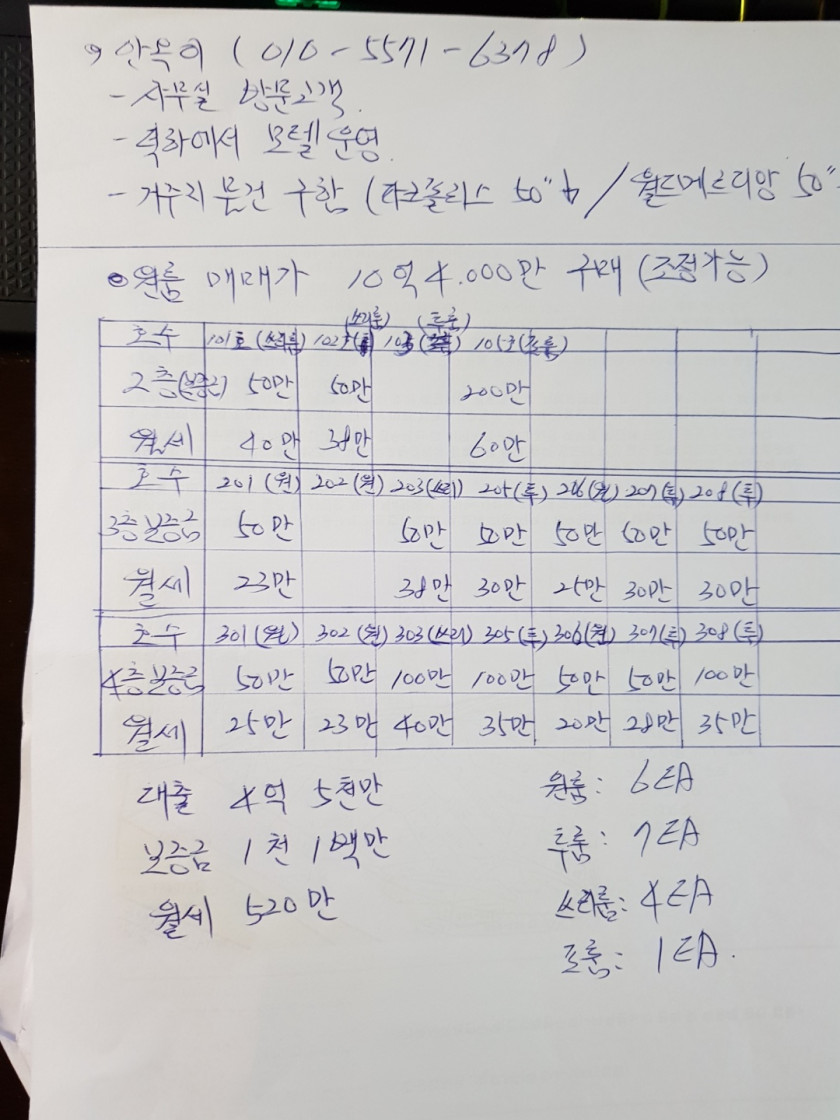 안옥이 (010-5571-6378)
- 사무실 방문고객.
- 덕하에서 모텔 운영.
- 거주리 물건 구함 (파크폴리스 50" / 월드메르디앙 50"
원룸 매매가 10억 4.000만 구매 (조정가능)
(쓰리룸) (투룸)
호수 101호 (쓰리룸) 102호 103 105호 (포룸)
2층 50만 50만 200만
월세 40만 38만 60만
호수 201 (원) 202 (원) 203 (쓰리) 205 (투) 206 (원) 207 (투) 208 (투)
3층보증금 50만 50만 50만 50만 50만 50만
월세 23만 38만 30만 25만 30만 30만
호수 301 (원) 302 (원) 303 (쓰리) 305 (투) 306 (원) 307 (투) 308 (투)
4층보증금 50만 50만 100만 100만 50만 50만 100만
월세 25만 23만 40만 35만 20만 28만 35만
대출 4억 5천만 원룸: 6EA
보증금 1천 1백만 투룸: 7EA
월세 520만 쓰리룸: 4EA
포룸: 1EA.